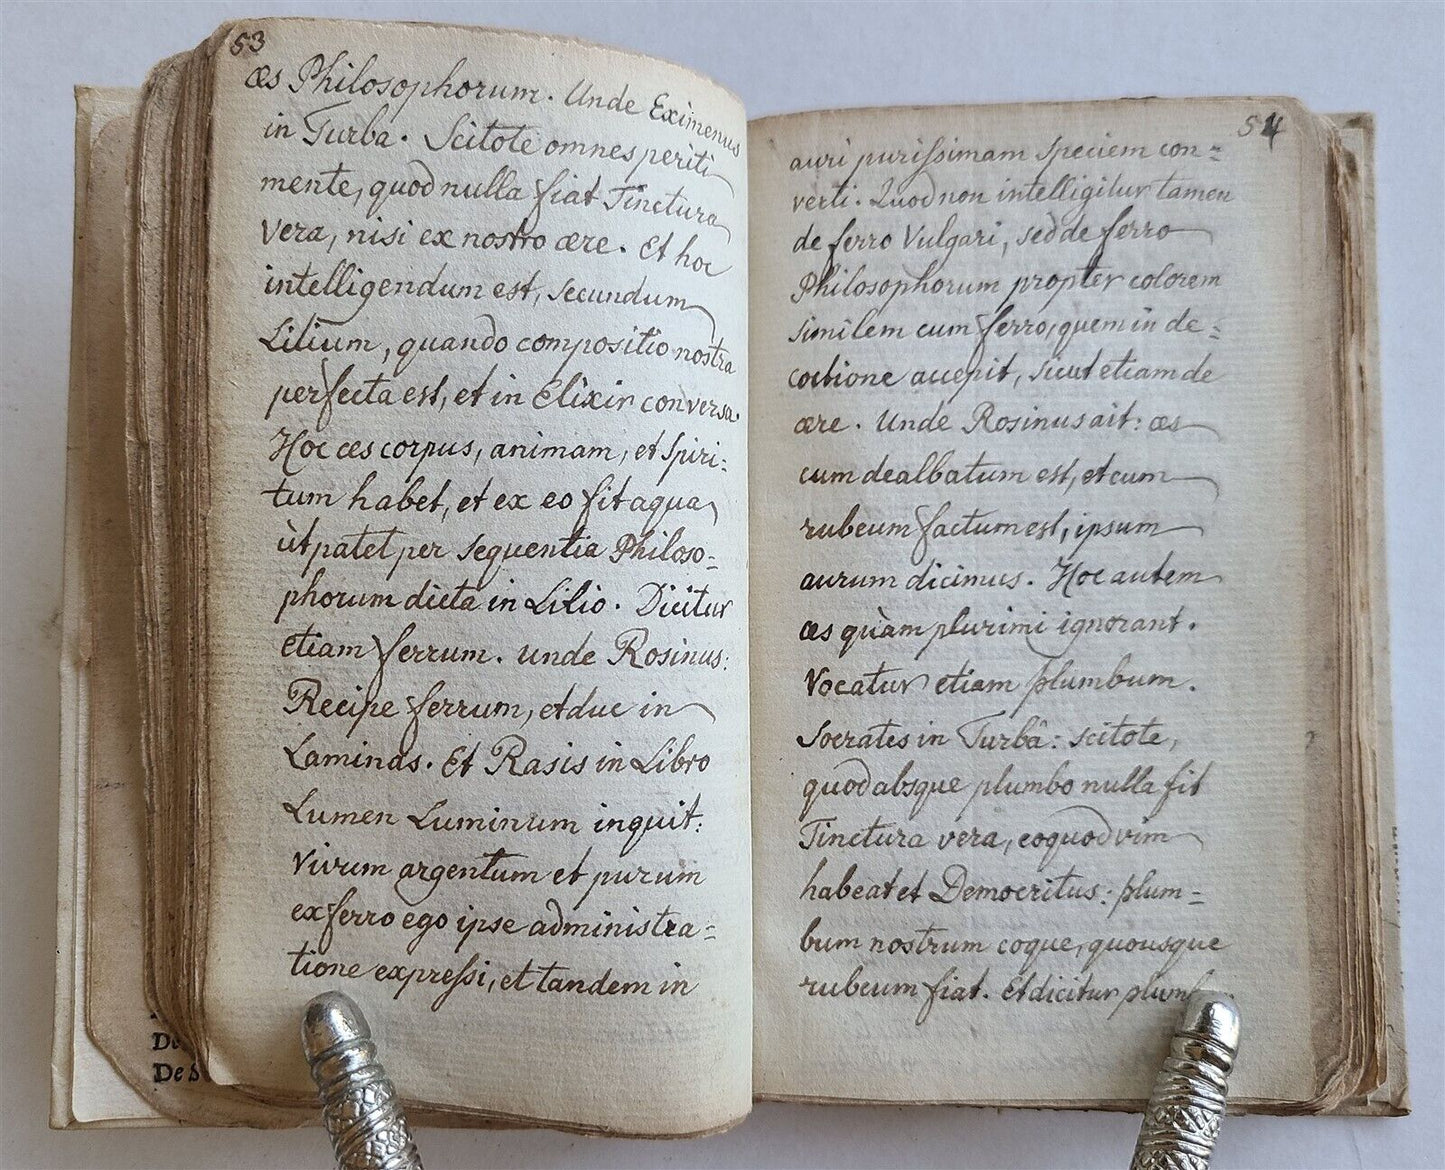 53
æs Philosophorum. Unde Eximenus
in Turba. Scitote omnes periti
mente, quod nulla fiat Tinctura
vera, nisi ex nostro ære. Et hoc
intelligendum est, secundum
Lilium, quando compositio nostra
perfecta est, et in Elixir conversa.
Hoc æs corpus, animam, et spiri:
tum habet, et ex eo fit aqua,
ùt patet per sequentia Philoso=
phorum dicta in Lilio. Dicitur
etiam ferrum. unde Rosinus:
Recipe ferrum, et duc in
Laminas. Et Rasis in Libro
Lumen Luminum inquit:
Vivum argentum et purum
ex ferro ego ipse administra=
tione expreſsi, et tandem in
De
De S
54
auri puriſsimam speciem con=
verti. Quod non intelligitur tamen
de ferro Vulgari, sed de ferro
Philosophorum propter colorem
similem cum ferro, quem in de=
coctione accepit, sicut etiam de
ære. Unde Rosinus ait: æs
cum dealbatum est, et cum
rubeum factum est, ipsum
aurum dicimus. Hoc autem
æs quàm plurimi ignorant.
Vocatur etiam plumbum.
Socrates in Turbâ: scitote,
quod absque plumbo nulla fit
Tinctura vera, eo quod vim
habeat et Democritus: plum=
bum nostrum coque, quousque
rubeum fiat. Et dicitur plumb